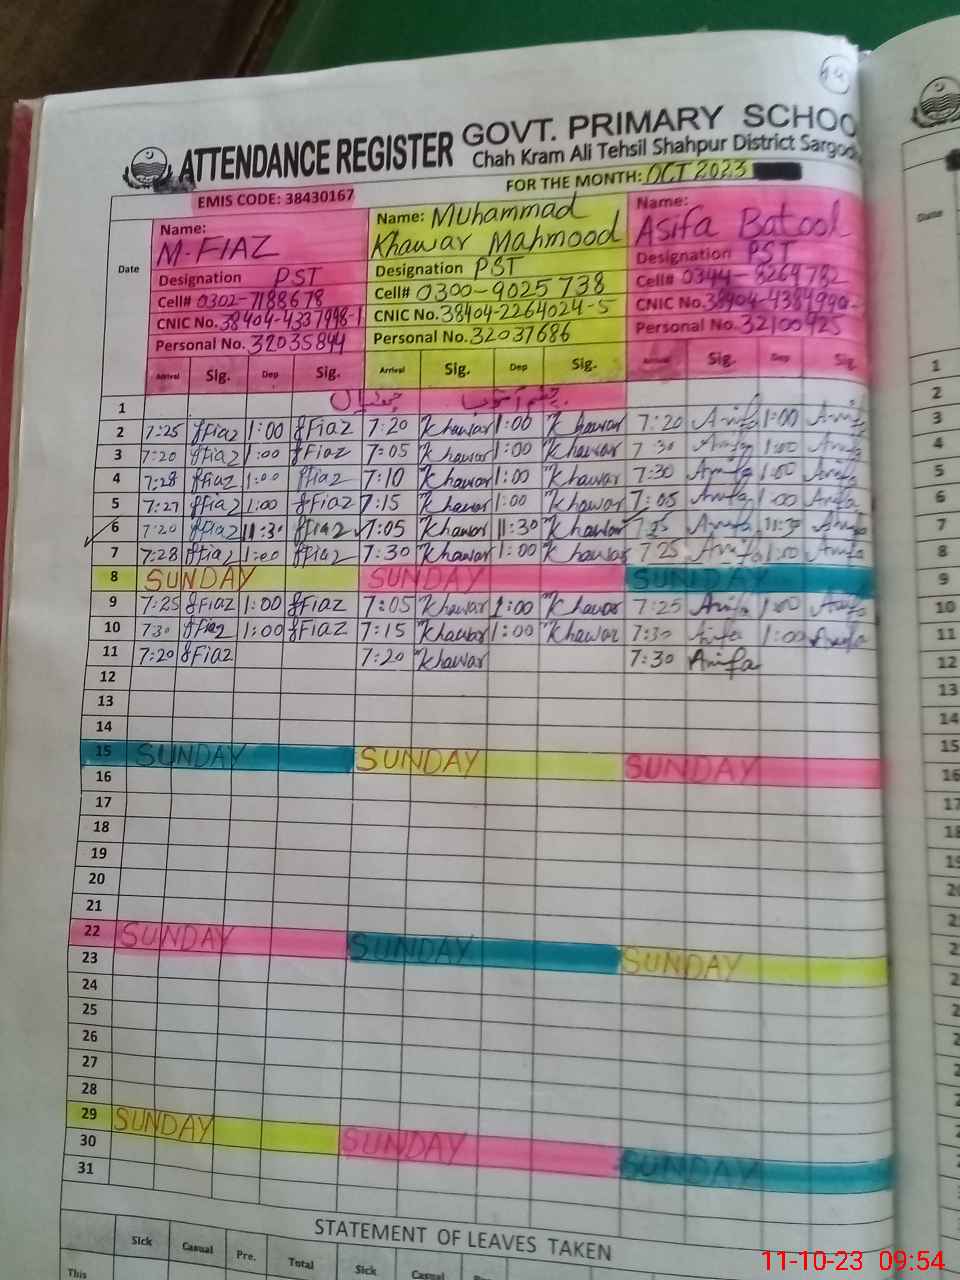 14
ATTENDANCE REGISTER GOVT. PRIMARY SCHOO
Chah Kram Ali Tehsil Shahpur District Sargod
FOR THE MONTH: OCT 2023
EMIS CODE: 38430167
Date
Name: M-FIAZ
Designation PST
Cell# 0302-7188678
CNIC No. 38404-4337998-1
Personal No. 32035844
Name: Muhammad
Khawar Mahmood
Designation PST
Cell# 0300-9025738
CNIC No. 38404-2264024-5
Personal No. 32037686
Name:
Asifa Batool
Designation PST
Cell# 0344-8264782
CNIC No.
Personal No. 32100425
Arrival Sig. Dep Sig. Arrival Sig. Dep Sig. Arrival Sig. Dep Sig.
1
2 7:25 fFiaz 1:00 fFiaz 7:20 Khawar 1:00 Khawar 7:20 Asifa 1:00 Asifa
3 7:20 fFiaz 1:00 fFiaz 7:05 Khawar 1:00 Khawar 7:30 Asifa 1:00 Asifa
4 7:28 fFiaz 1:00 fFiaz 7:10 Khawar 1:00 Khawar 7:30 Asifa 1:00 Asifa
5 7:27 fFiaz 1:00 fFiaz 7:15 Khawar 1:00 Khawar 7:05 Asifa 1:00 Asifa
6 7:20 fFiaz 11:30 fFiaz 7:05 Khawar 11:30 Khawar 7:25 Asifa 11:30 Asifa
7 7:28 fFiaz 1:00 fFiaz 7:30 Khawar 1:00 Khawar 7:25 Asifa 1:00 Asifa
8 SUNDAY SUNDAY SUNDAY
9 7:25 fFiaz 1:00 fFiaz 7:05 Khawar 1:00 Khawar 7:25 Asifa 1:00 Asifa
10 7:30 fFiaz 1:00 fFiaz 7:15 Khawar 1:00 Khawar 7:30 Asifa 1:00 Asifa
11 7:20 fFiaz 7:20 Khawar 7:30 Asifa
12
13
14
15 SUNDAY SUNDAY SUNDAY
16
17
18
19
20
21
22 SUNDAY SUNDAY SUNDAY
23
24
25
26
27
28
29 SUNDAY SUNDAY SUNDAY
30
31
STATEMENT OF LEAVES TAKEN
Sick Casual Pre. Total Sick Casual
This
Date
1
2
3
4
5
6
7
8
9
10
11
12
13
14
15
16
17
18
11-10-23 09:54